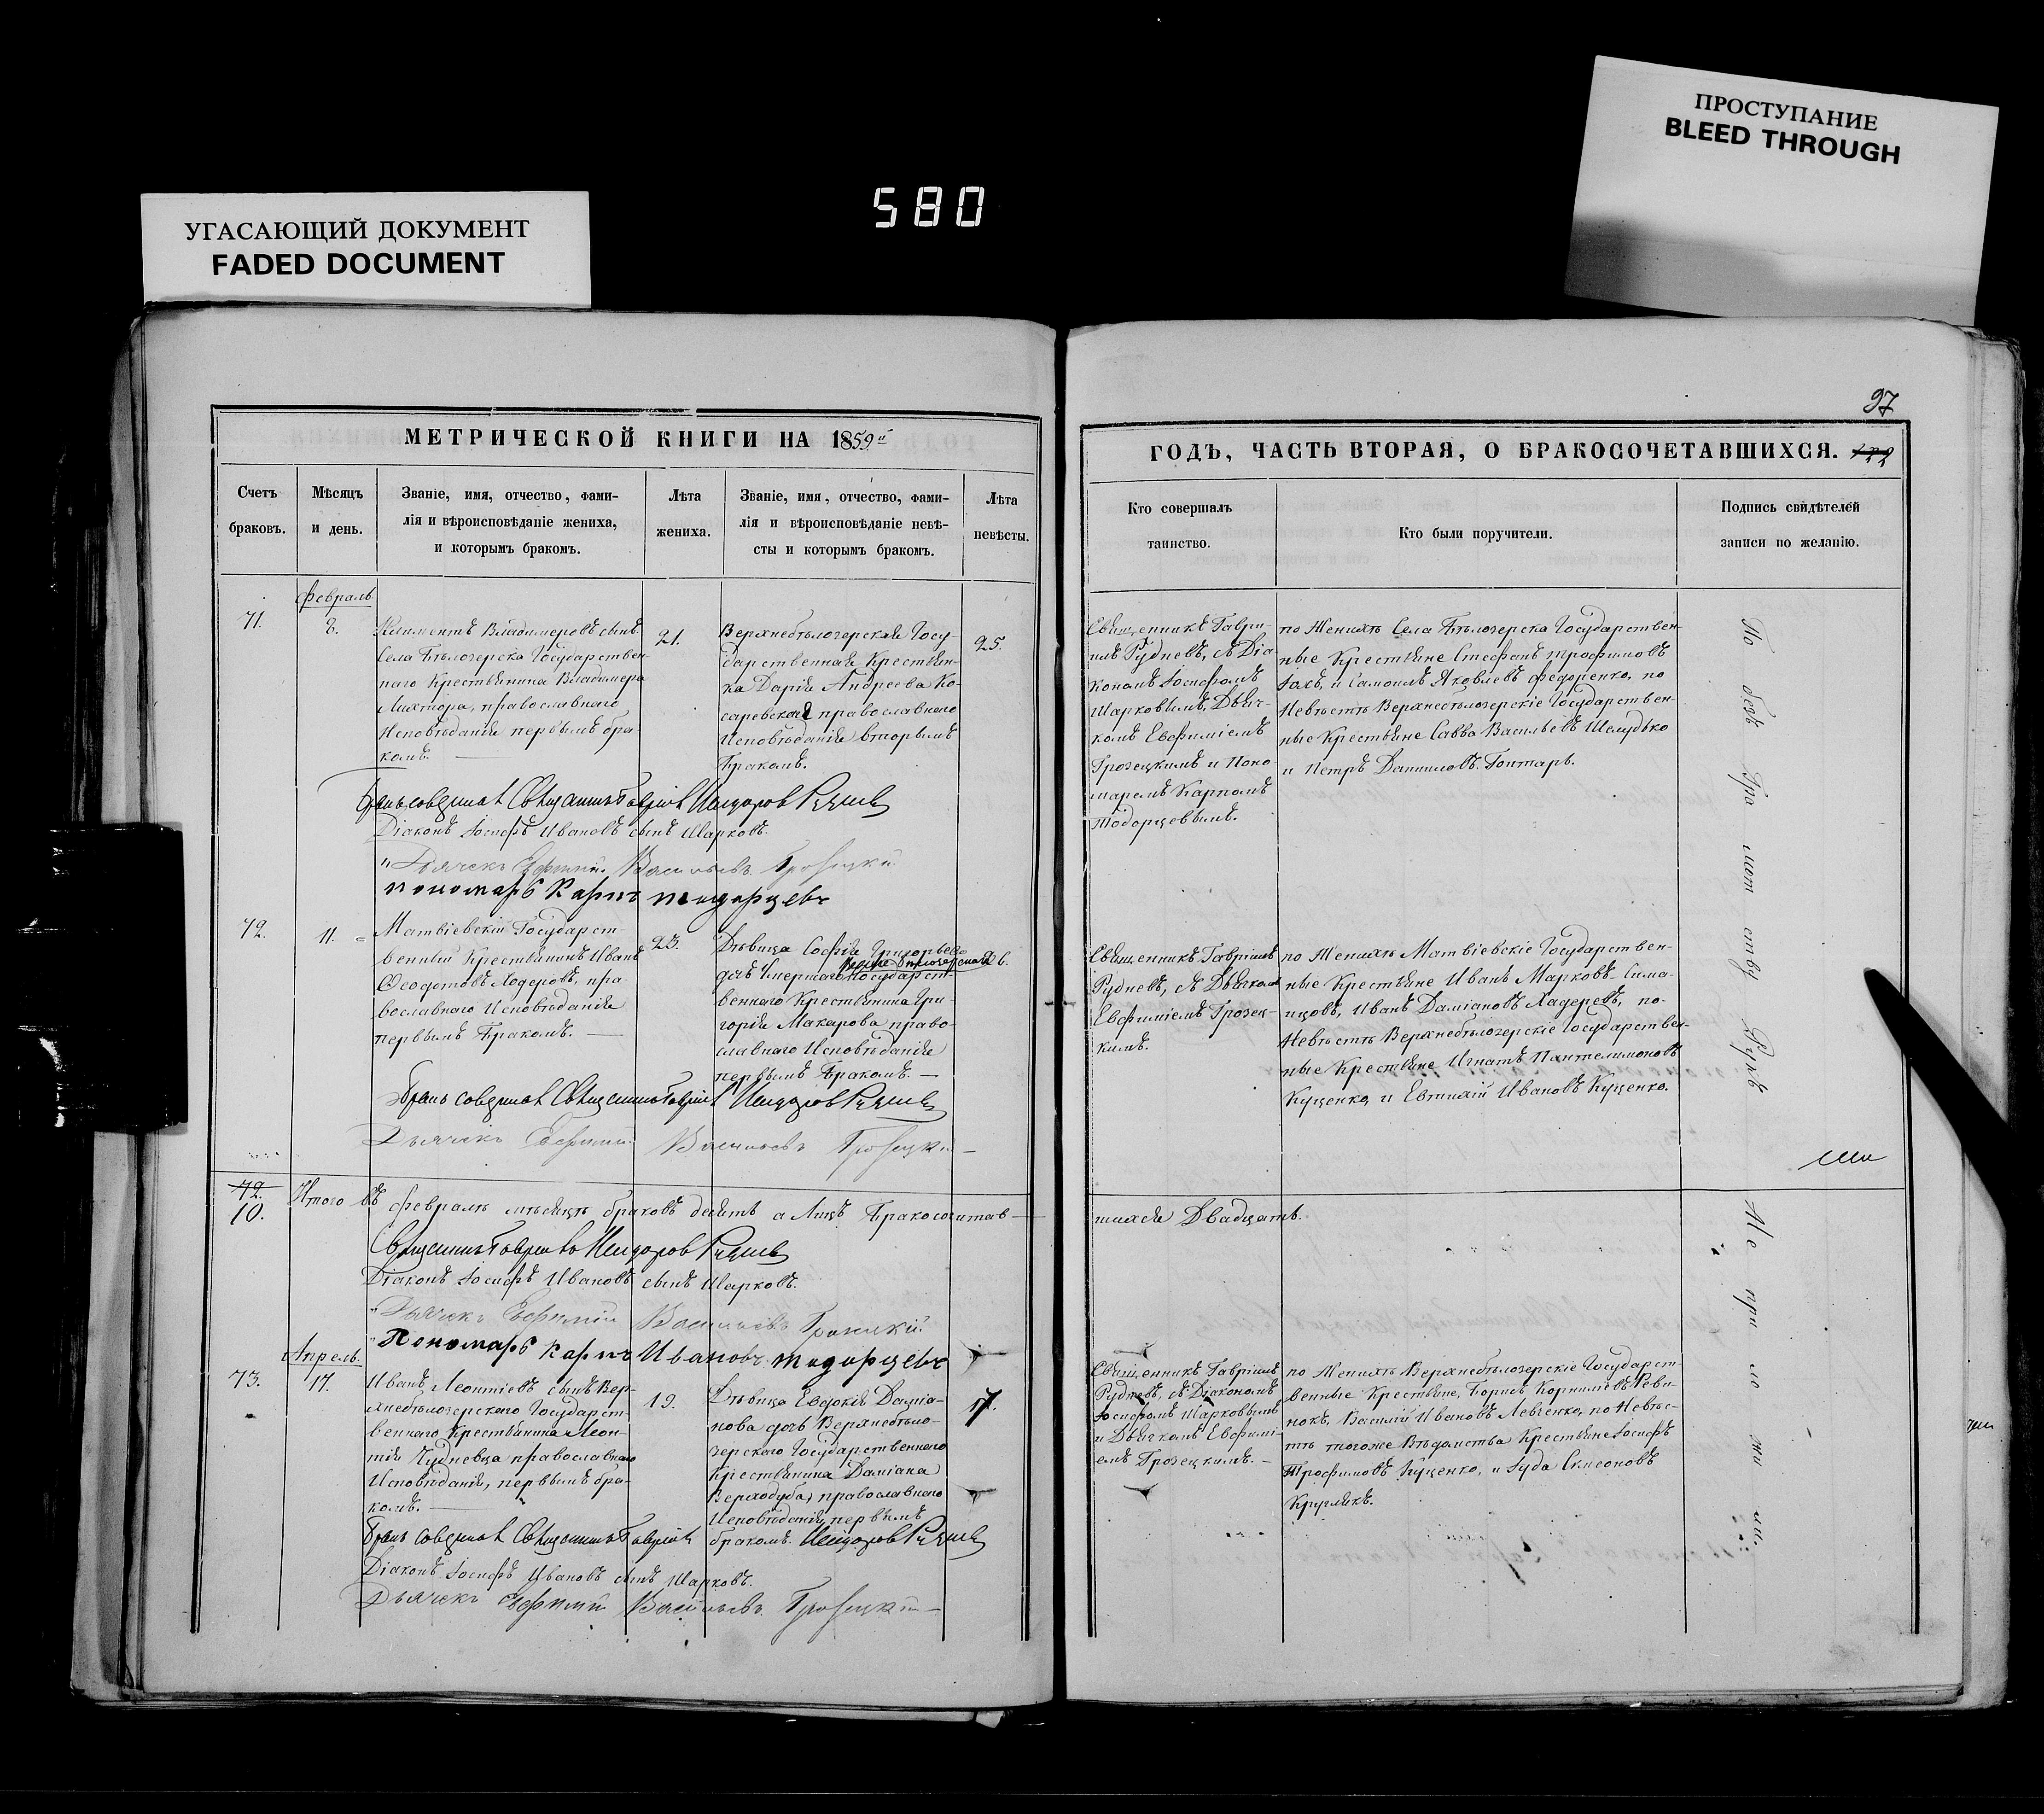 УГАСАЮЩИЙ ДОКУМЕНТ
FADED DOCUMENT
580
ПРОСТУПАНИЕ
BLEED THROUGH
МЕТРИЧЕСКОЙ КНИГИ НА 1859й
Счетъ браковъ.
Мѣсяцъ и день.
Званіе, имя, отчество, фами-
лія и вѣроисповѣданіе жениха,
и которымъ бракомъ.
Лѣта
жениха.
Званіе, имя, отчество, фами-
лія и вѣроисповѣданіе невѣ-
сты и которымъ бракомъ.
Лѣта
невѣсты.
Февраль
71.
8.
Климентъ Владимеровъ сынъ
Села Бѣлозерска Государствен-
наго Крестьянина Владимера
Лихтора, православнаго
Исповѣданія первымъ бра-
комъ.
21.
Верхнебѣлозерская Госу-
дарственная Крестьян-
ка Дарія Андреева Ко-
саревская православнаго
Исповѣданія вторымъ
Бракомъ.
25.
Бракъ совершалъ Священникъ Гавріилъ Исидоровъ Рудневъ
Діаконъ Іосифъ Ивановъ сынъ Шарковъ.
Дьячекъ Евфимій Васильевъ Грозецкій
Пономарь Карпъ Тодорцевъ
72.
11.
Матвіевскій Государст-
венный Крестьянинъ Иванъ
Ѳеодотовъ Ходеровъ, пра
вославнаго Исповѣданія
первымъ Бракомъ.
23.
Дѣвица Софія Григорьева
дочь Умершаго Государст
веннаго Крестьянина Гри-
горія Макарова право-
славнаго Исповѣданія
первымъ Бракомъ.
Бракъ совершалъ Священникъ Гавріилъ Исидоровъ Рудневъ
Дьячекъ Евфимій Васильевъ Грозецкій
72.
10.
Итого въ Февралѣ мѣсяцѣ браковъ десять а Лицъ Бракосочетав-
Священникъ Гавріилъ Исидоровъ Рудневъ
Діаконъ Іосифъ Ивановъ сынъ Шарковъ.
Дьячекъ Евфимій Васильевъ Грозецкій
Пономарь Карпъ Ивановъ Тодорцевъ
Апрель.
73.
17.
Иванъ Леонтіевъ сынъ Вер-
хнебѣлозерскаго Государст-
веннаго Крестьянина Леон-
тія Чудневца православнаго
Исповѣданія, первымъ бра-
комъ.
19.
Дѣвица Евдокія Даміа-
нова дочь Верхнебѣло-
зерскаго Государственнаго
Крестьянина Даміана
Верходуба, православнаго
Исповѣданія, первымъ
бракомъ.
17.
Бракъ совершалъ Священникъ Гавріилъ Исидоровъ Рудневъ
Діаконъ Іосифъ Ивановъ сынъ Шарковъ.
Дьячекъ Евфимій Васильевъ Грозецкій
97
ГОДЪ, ЧАСТЬ ВТОРАЯ, О БРАКОСОЧЕТАВШИХСЯ.
Кто совершалъ
таинство.
Кто были поручители.
Подпись свидѣтелей
записи по желанію.
Священникъ Гаври-
илъ Рудневъ, съ Діа-
кономъ Іосифомъ
Шарковымъ, Дьяч-
комъ Евфиміемъ
Грозецкимъ и Поно-
маремъ Карпомъ
Тодорцевымъ.
по Женихѣ Села Бѣлозерска Государствен-
ные Крестьяне Стефанъ Трофимовъ
и Самоилъ Яковлевъ Федоренко, по
Невѣстѣ Верхнебѣлозерскіе Государствен-
ные Крестьяне Савва Васильевъ Шелудько
и Петръ Даниловъ Гонтарь.
Священникъ Гавріилъ
Рудневъ, съ Дьячкомъ
Евфиміемъ Грозец-
кимъ.
по Женихѣ Матвіевскіе Государствен-
ные Крестьяне Иванъ Марковъ Сима-
нцовъ, Иванъ Даміановъ Хадеревъ, по-
Невѣстѣ Верхнебѣлозерскіе Государствен-
ные Крестьяне Игнатъ Пантелимоновъ
Куценко, и Евтихій Ивановъ Куценко.
шихся Двадцать.
Священникъ Гавріилъ
Рудневъ, съ Діакономъ
Іосифомъ Шарковымъ
и Дьячкомъ Евфимі-
емъ Грозецкимъ.
по Женихѣ Верхнебѣлозерскіе Государст-
венные Крестьяне, Борисъ Корниліевъ Реви-
нокъ, Василій Ивановъ Левченко, по Невѣс-
тѣ тогоже Вѣдомства Крестьяне Іосифъ
Трофимовъ Куценко, и Іуда Симеоновъ
Круглякъ.
По безъ Гра мот ству Рукъ
Не при ло жи ли